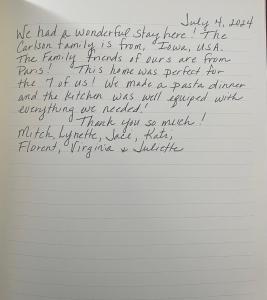 July 4, 2024
We had a wonderful stay here! The
Carlson family is from, Iowa, USA.
The family friends of ours are from
Paris! This home was perfect for
the 7 of us! We made a pasta dinner
and the kitchen was well equiped with
everything we needed!
Thank you so much!
Mitch, Lynette, Jace, Kati,
Florent, Virginia & Juliette